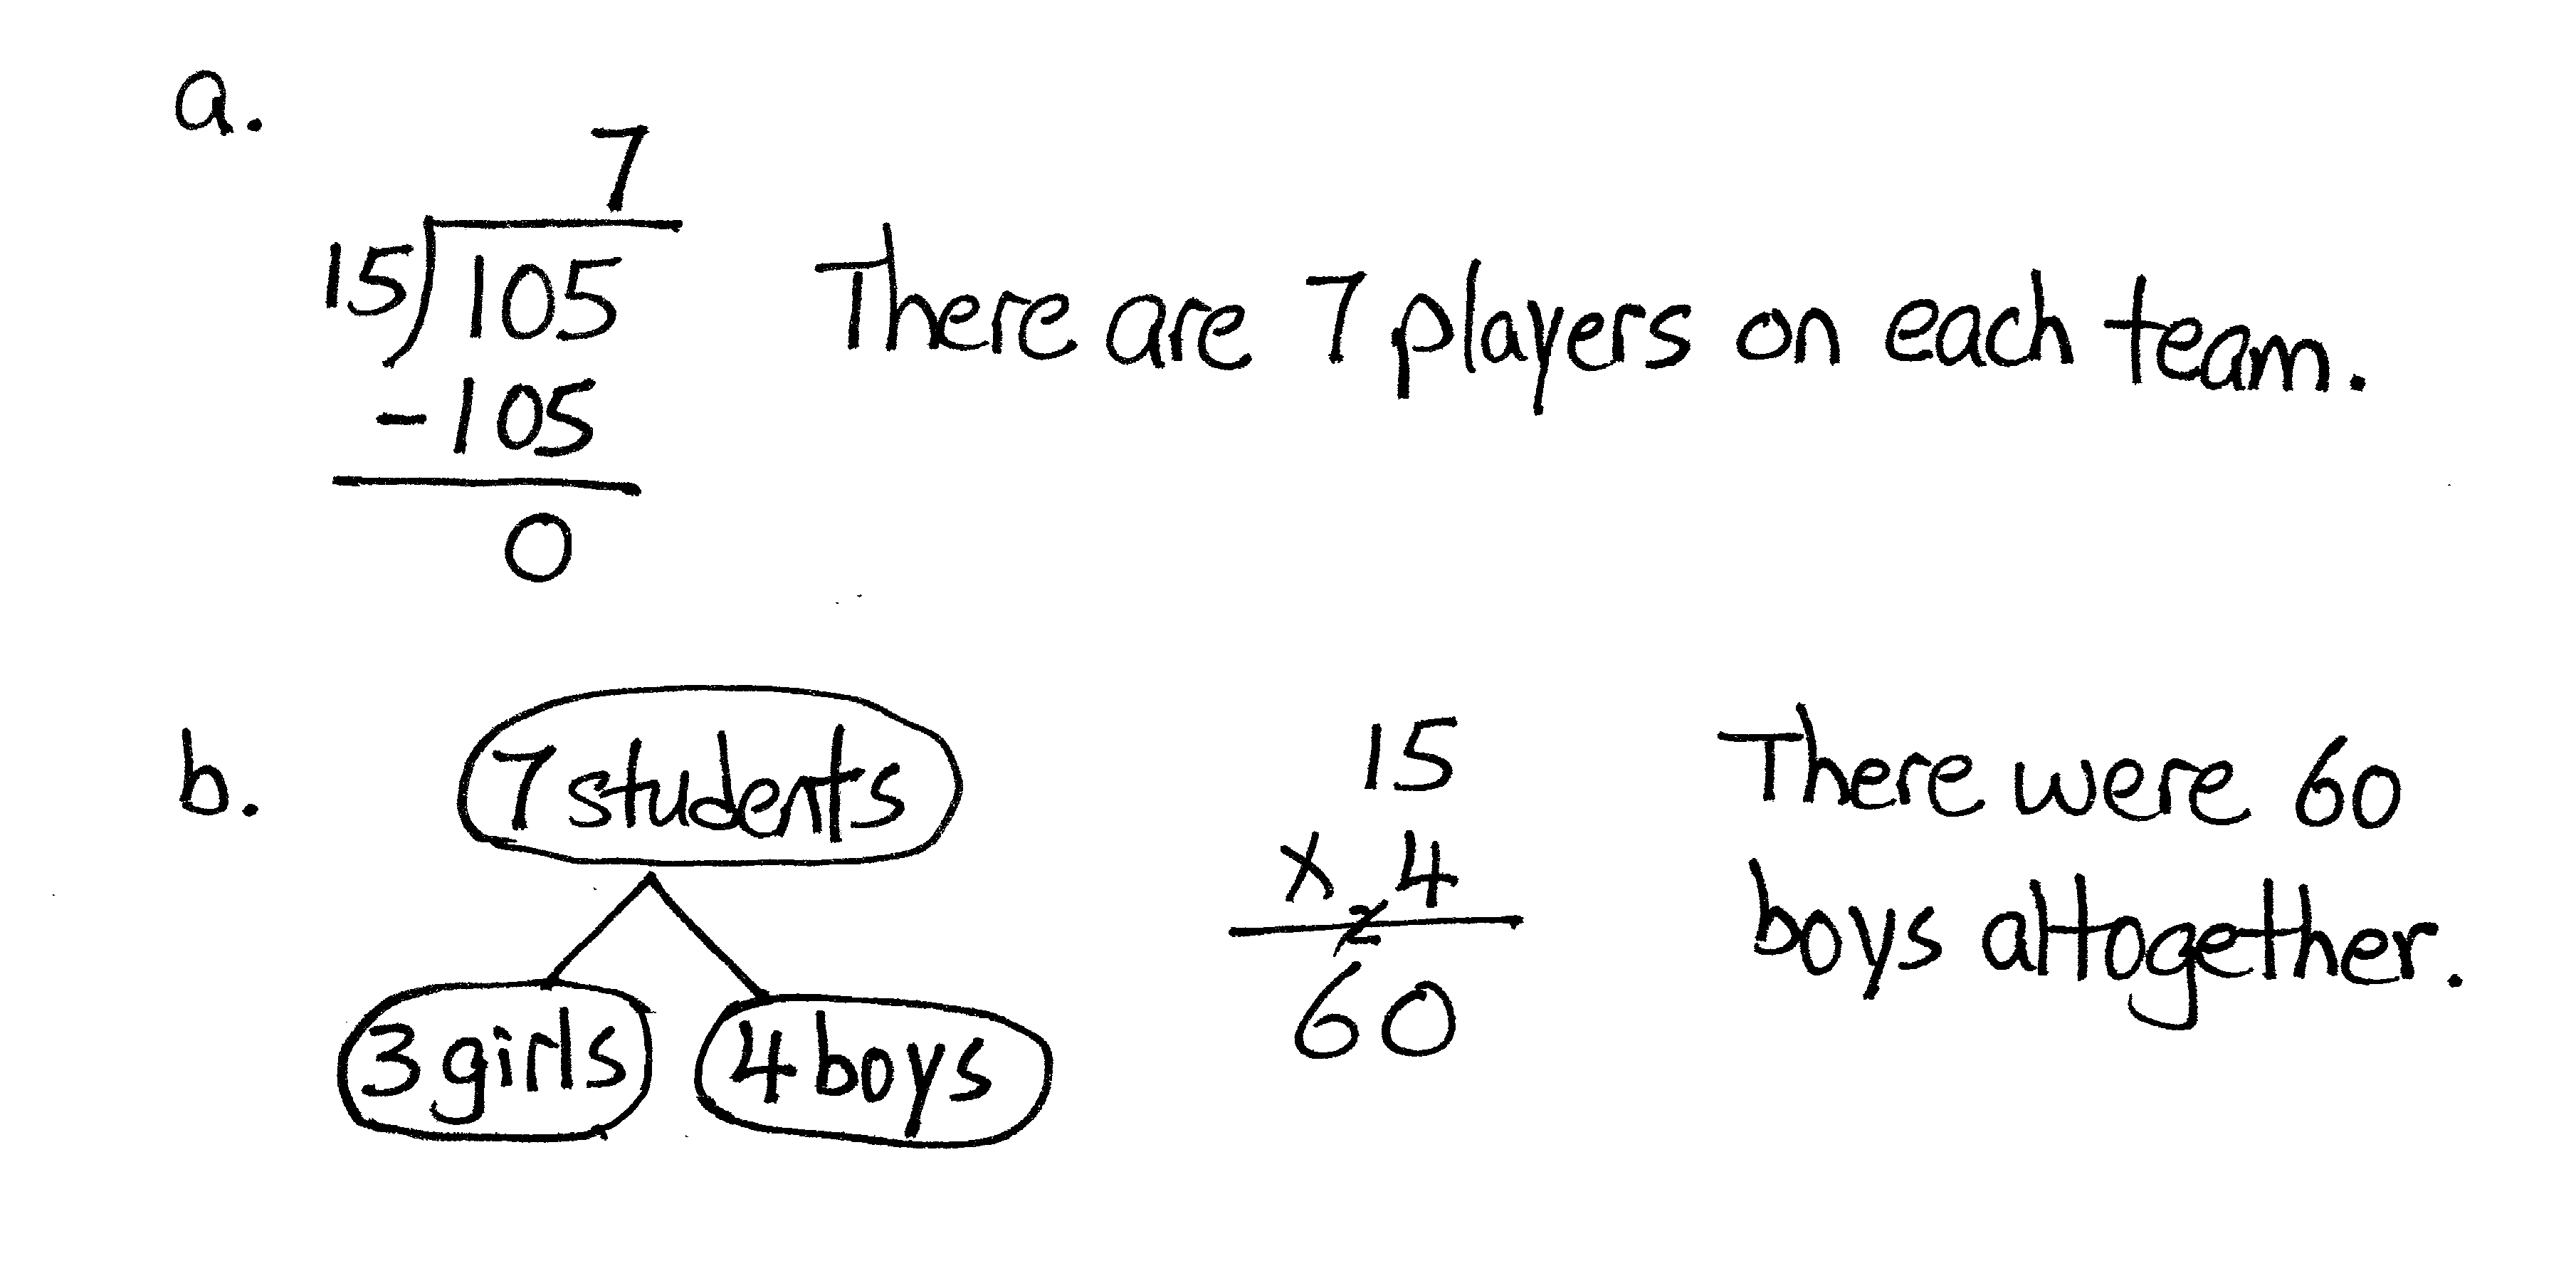 a.
7
15)105 There are 7 players on each team.
-105
0
b. 7 students
3 girls 4 boys
15
x 4
2
60
There were 60
boys altogether.